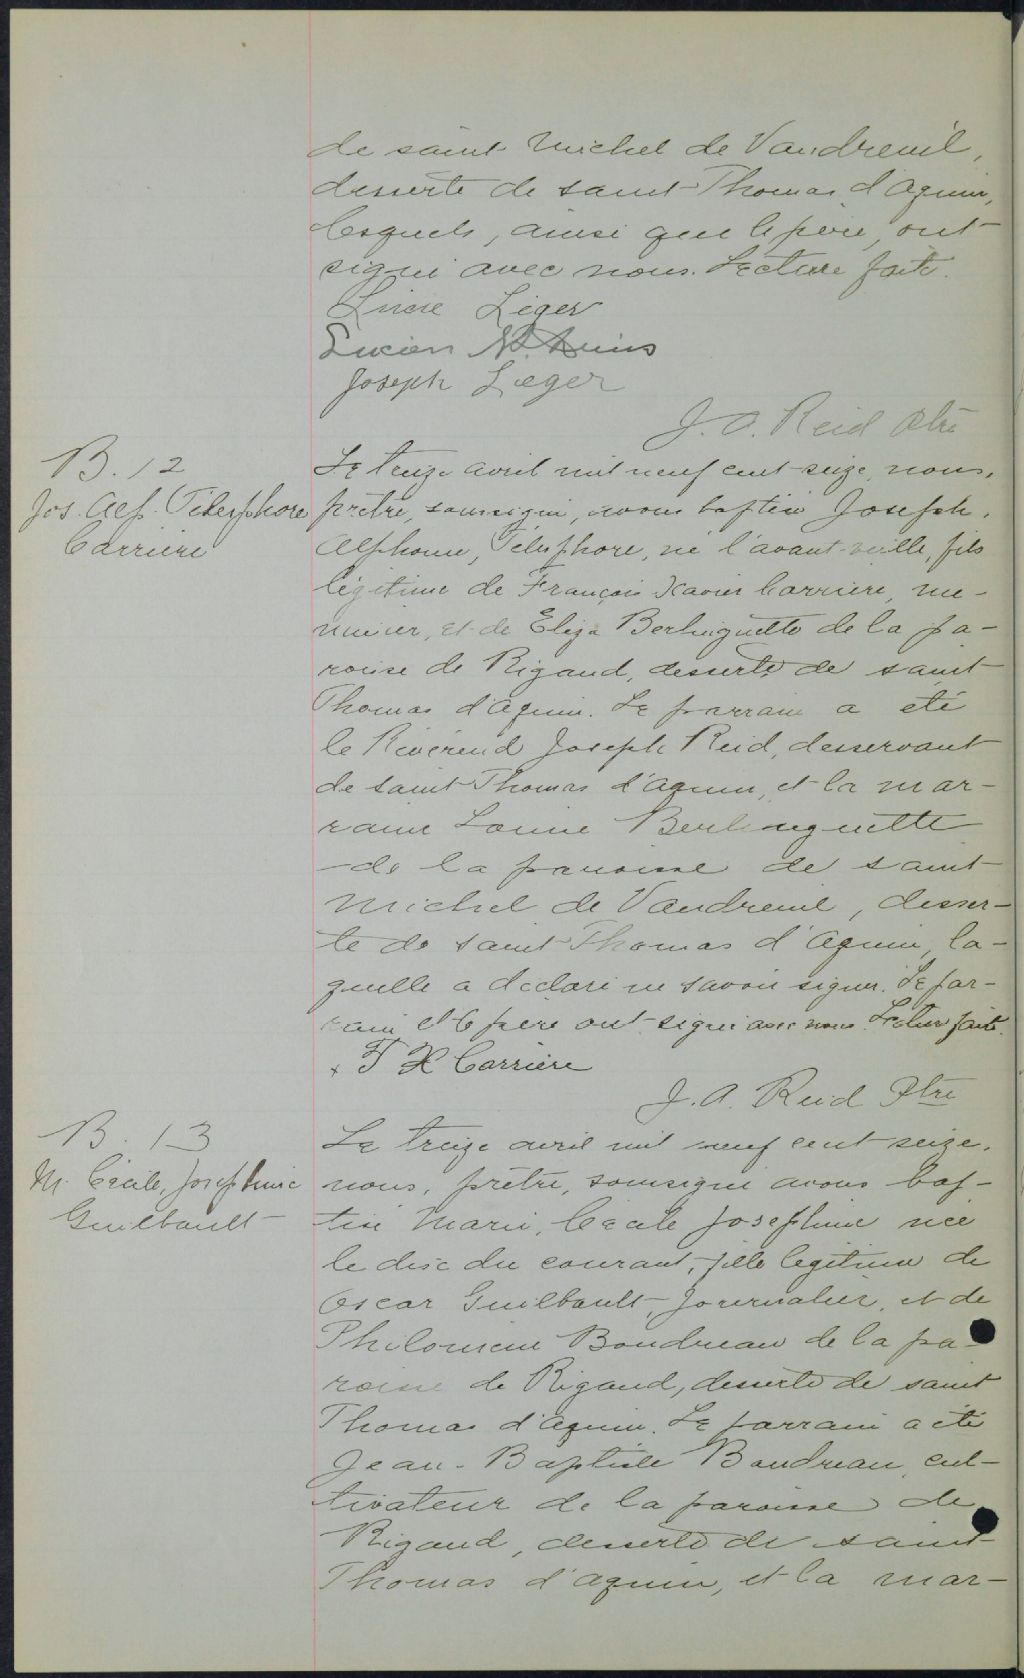 de saint Michel de Vaudreuil,
desserte de saint Thomas d'Aquin,
lesquels, ainsi que le père, ont
signé avec nous. Lecture faite.
Léger
Lucien
Joseph Léger
J. A. Reid Ptre
B. 12
Jos. Alp. Télesphore
Carrière
Le treize avril mil neuf cent seize, nous,
prêtre, soussigné, avons baptisé Joseph,
Alphonse, Télesphore, né l'avant-veille, fils
légitime de François Xavier Carrière, me-
nuisier, et de Eliza Berlinguette de la pa-
roisse de Rigaud, desserte de saint
Thomas d'Aquin. Le parrain a été
le Révérend Joseph Reid, desservant
de saint Thomas d'Aquin, et la mar-
raine Louise Berlinguette
de la paroisse de saint
Michel de Vaudreuil, desser-
te de saint Thomas d'Aquin, la-
quelle a déclaré ne savoir signer. Le par-
rain et le père ont signé avec nous. Lecture faite.
x F X Carrière
J. A. Reid Ptre
B. 13
M. Cécile, Josephine
Guilbault
Le treize avril mil neuf cent seize,
nous, prêtre, soussigné avons bap-
tisé Marie, Cécile Josephine née
le dix du courant, fille légitime de
Oscar Guilbault, journalier, et de
Philomène Boudreau de la pa-
roisse de Rigaud, desserte de saint
Thomas d'Aquin. Le parrain a été
Jean-Baptiste Boudreau, cul-
tivateur de la paroisse de
Rigaud, desserte de saint
Thomas d'Aquin, et la mar-